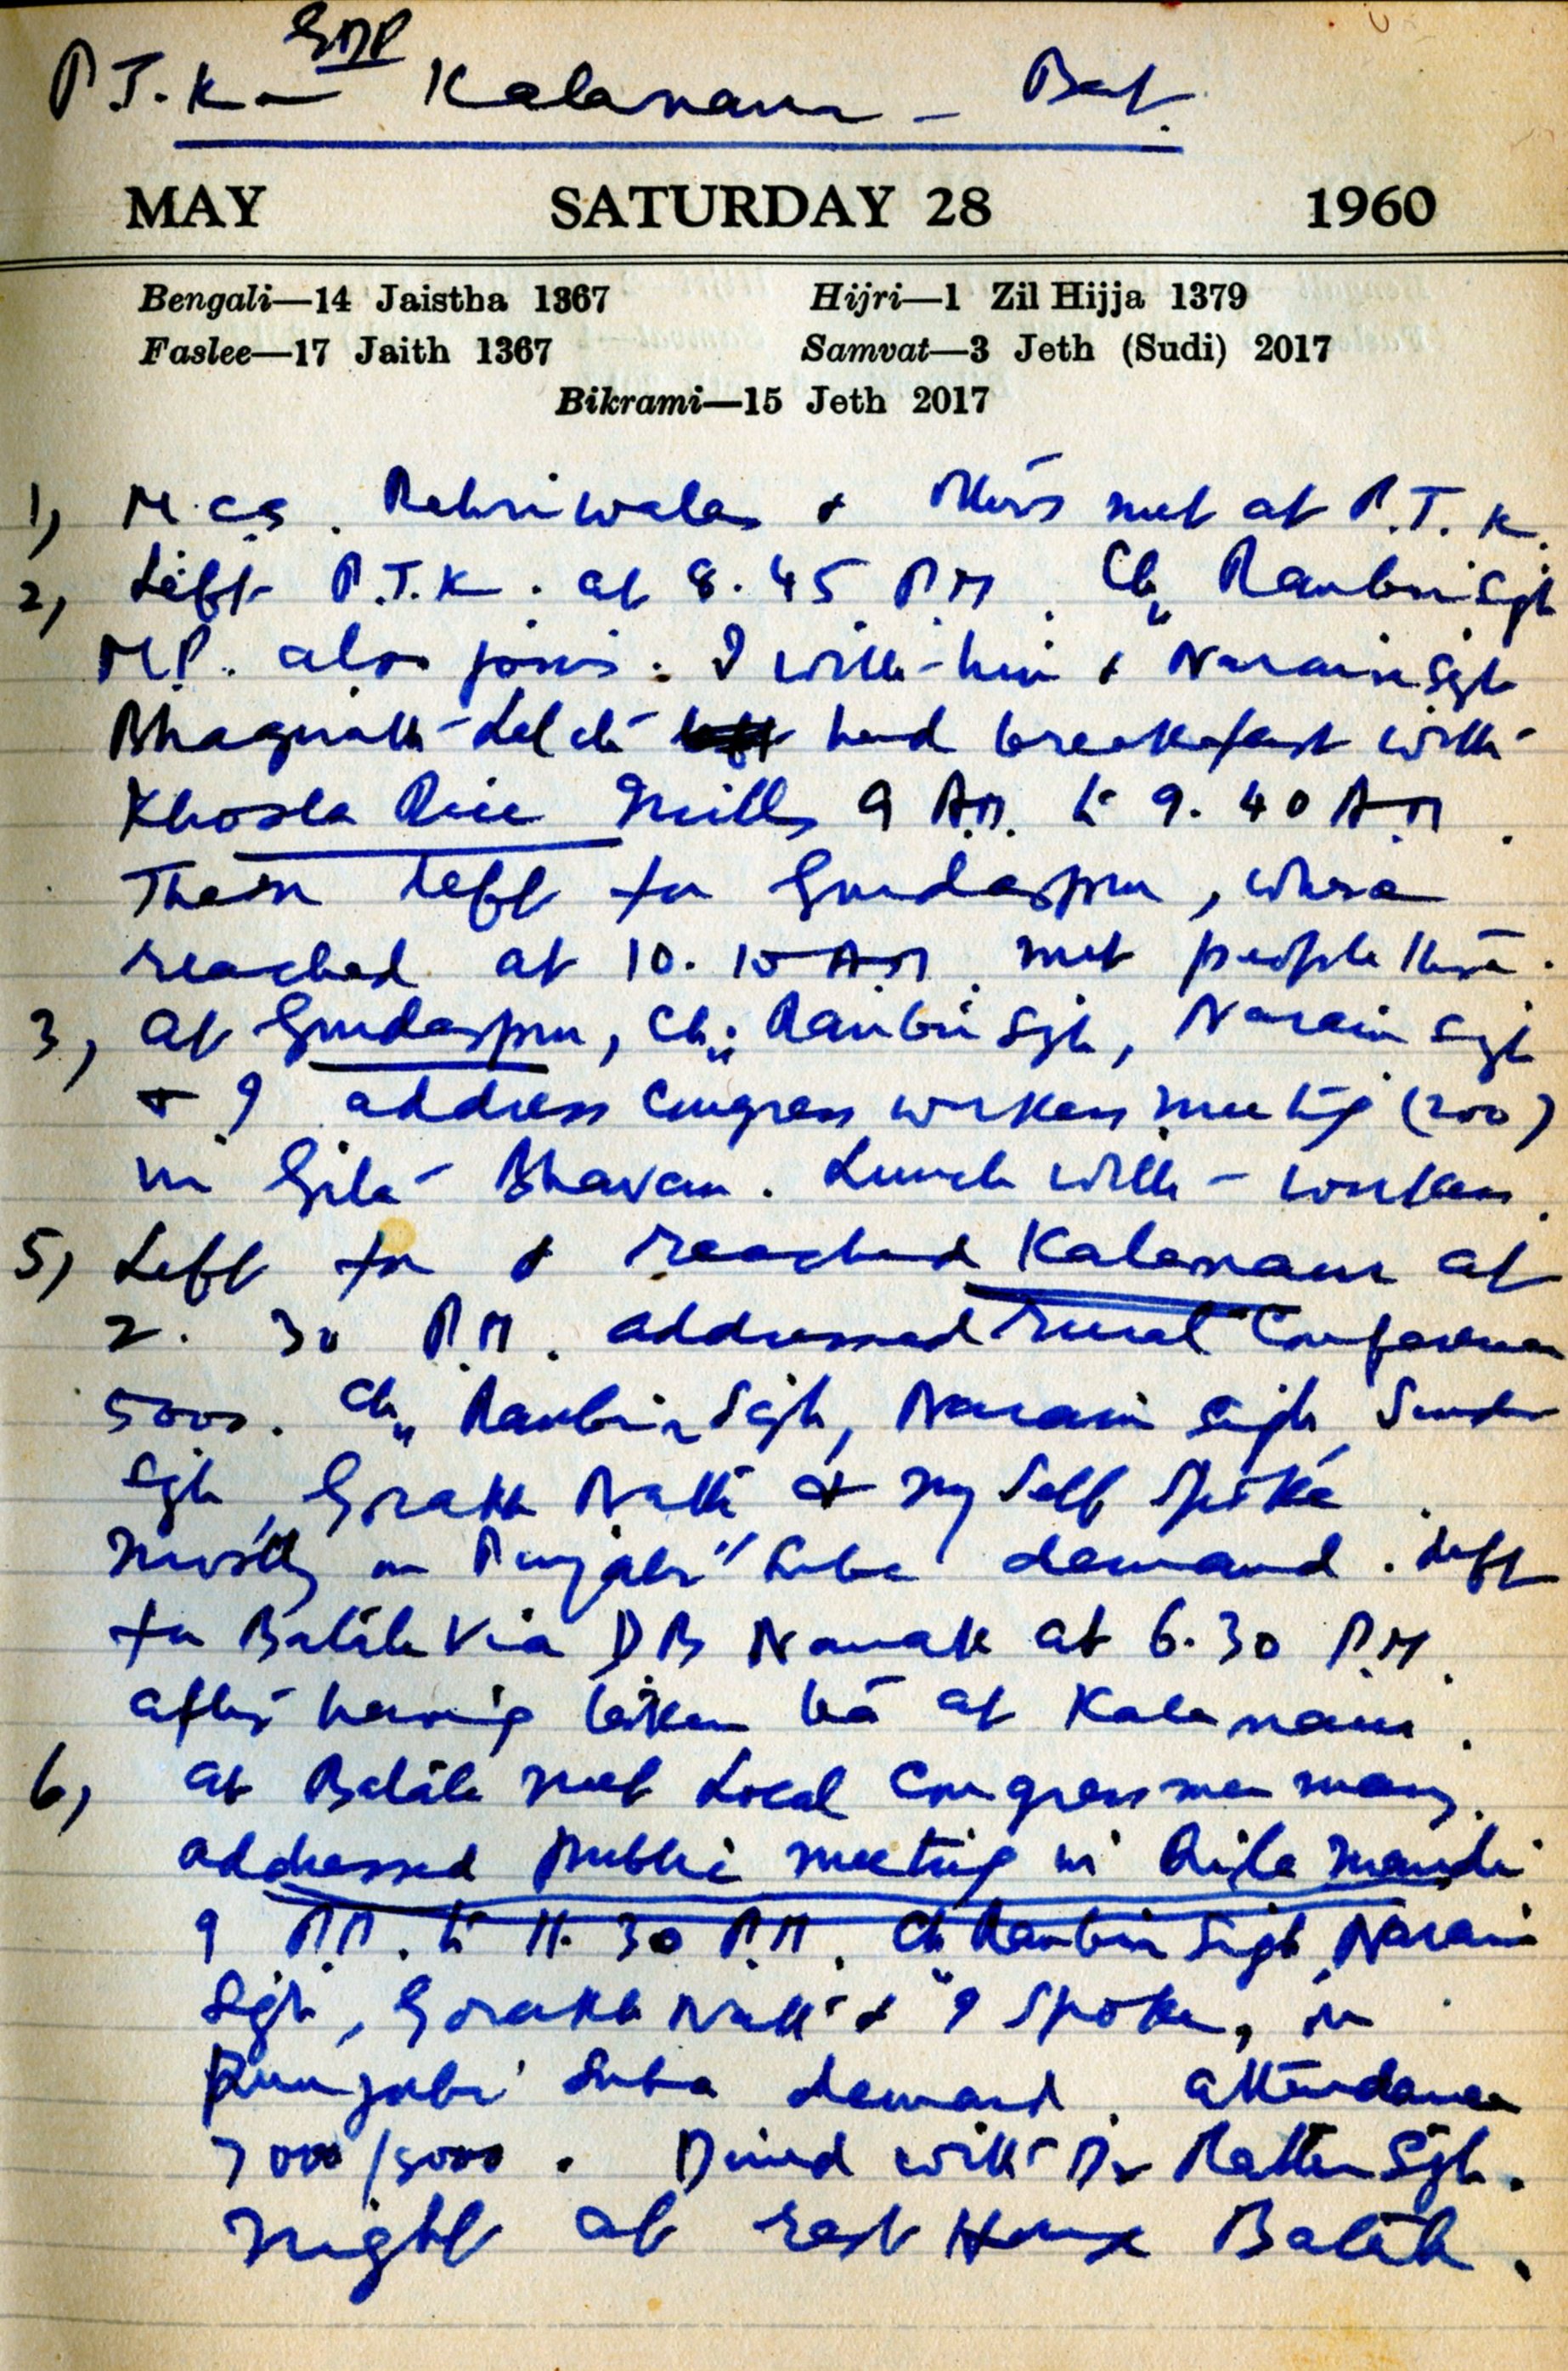 GDP
P.T.K — Kalanaur — Bat.
MAY SATURDAY 28 1960
Bengali—14 Jaistha 1367 Hijri—1 Zil Hijja 1379
Faslee—17 Jaith 1367 Samvat—3 Jeth (Sudi) 2017
Bikrami—15 Jeth 2017
1) M.C.s. Rehriwalas & others met at P.T.K.
2) Left P.T.K. at 8.45 P.M. Ch. Ranbir Sgh
M.P. also joins. I with him & Narain Sgh
had breakfast with
Khosla Rice Mills 9 A.M. to 9.40 A.M.
Then left for Gurdaspur, where
reached at 10.15 A.M. met people there.
3) at Gurdaspur, Ch. Ranbir Sgh, Narain Sgh
& I address Congress workers meeting (200)
in Gita Bhavan. Lunch with workers.
5) Left for & reached Kalanaur at
2.30 P.M. addressed rural Conference
5000. Ch. Ranbir Sgh, Narain Singh Sunder
Sgh, Gorakh Nath & my Self Spoke
mostly on Punjabi Suba demand. Left
for Batala via D B Nanak at 6.30 P.M.
after having taken tea at Kalanaur.
6) at Batala met Local Congressmen many.
addressed Public meeting in Mandi
9 P.M. to 11.30 P.M. Ch Ranbir Singh Narain
Sgh, Gorakh Nath & I Spoke, on
Punjabi Suba demand. attendance
7000/8000. Dined with Dr Rattan Sgh.
Night at rest House Batala.